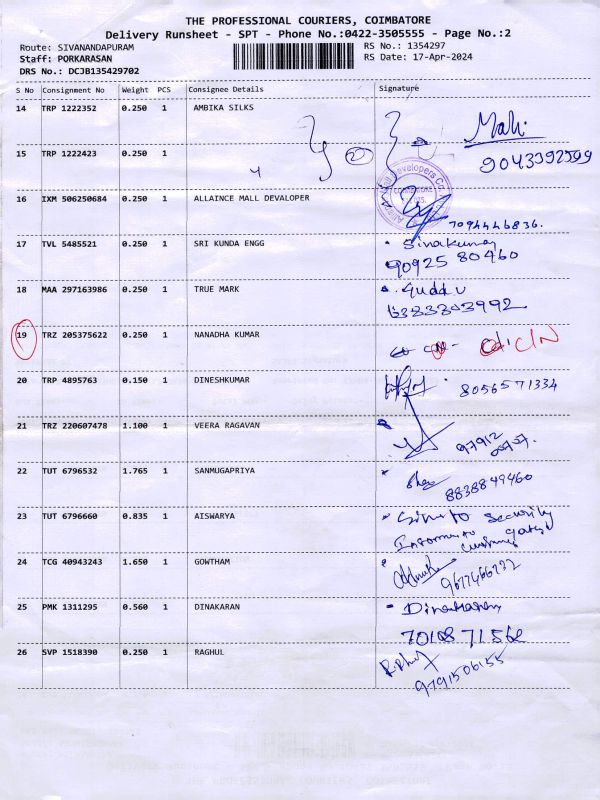 THE PROFESSIONAL COURIERS, COIMBATORE
Delivery Runsheet - SPT - Phone No.:0422-3505555 - Page No.:2
Route: SIVANANDAPURAM
RS No.: 1354297
Staff: PORKARASAN
RS Date: 17-Apr-2024
DRS No.: DCJB135429702
S No Consignment No Weight PCS Consignee Details Signature
14 TRP 1222352 0.250 1 AMBIKA SILKS
Mali
15 TRP 1222423 0.250 1
9043392599
16 IXM 506250684 0.250 1 ALLAINCE MALL DEVALOPER
7094446836.
17 TVL 5485521 0.250 1 SRI KUNDA ENGG Sivakumar
90925 80460
18 MAA 297163986 0.250 1 TRUE MARK Guddu
6383303992
19 TRZ 205375622 0.250 1 NANADHA KUMAR
20 TRP 4895763 0.150 1 DINESHKUMAR 8056571334
21 TRZ 220607478 1.100 1 VEERA RAGAVAN
97912
22 TUT 6796532 1.765 1 SANMUGAPRIYA
8838849460
23 TUT 6796660 0.835 1 AISWARYA Give to Security
24 TCG 40943243 1.650 1 GOWTHAM
9677466232
25 PMK 1311295 0.560 1 DINAKARAN Dinakaran
26 SVP 1518390 0.250 1 RAGHUL
9791506155